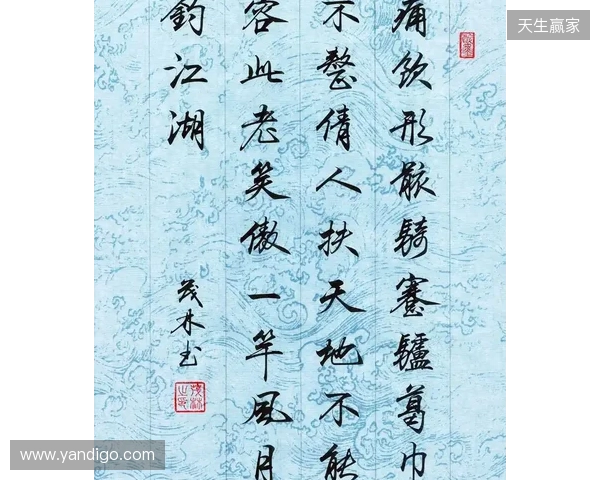 天生赢家
痛飲形骸騎蹇驢葛巾
不整倩人扶天地不能
容此老笑傲一竿風月
釣江湖
茂林书
www.yandigo.com